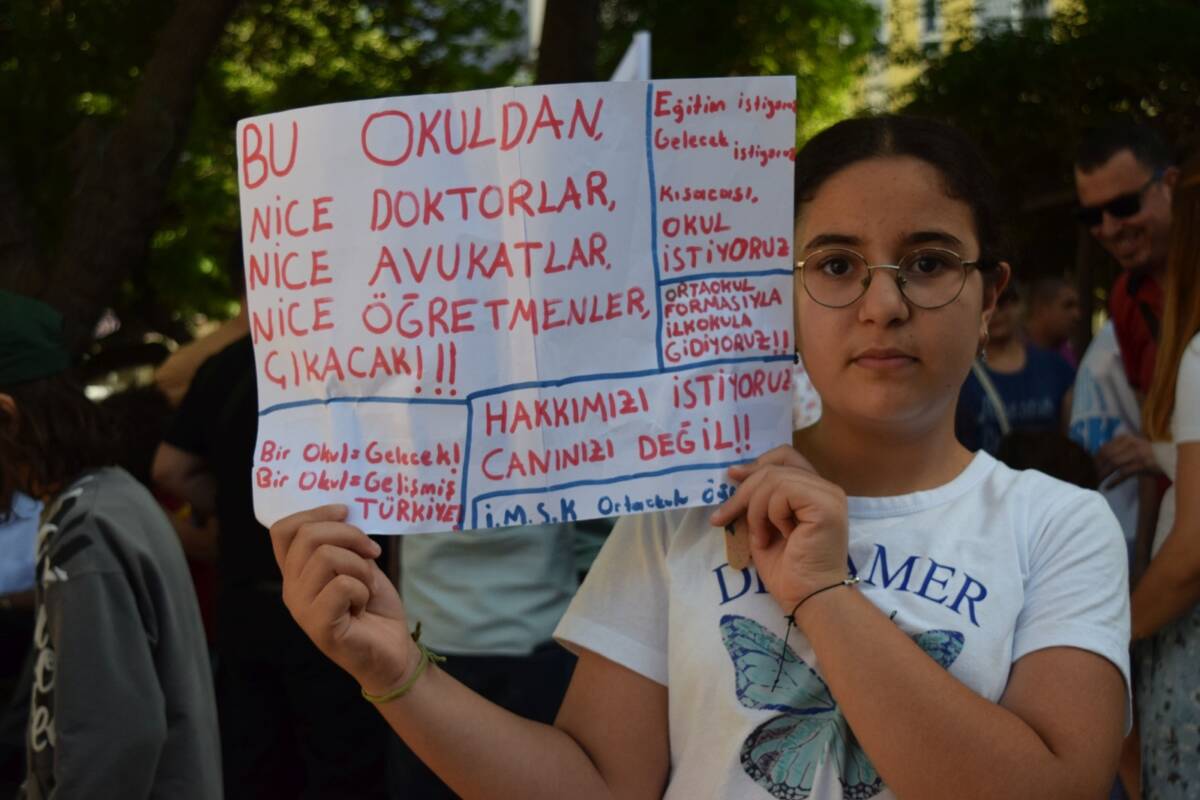 BU OKULDAN,
NİCE DOKTORLAR,
NİCE AVUKATLAR,
NİCE ÖĞRETMENLER,
ÇIKACAK!!!
Eğitim
Gelecek
Kısacası,
OKUL
İSTİYORUZ
ORTAOKUL
FORMASIYLA
İLKOKULA
GİDİYORUZ!!
Bir Okul=Gelecek!
Bir Okul=Gelişmiş
TÜRKİYE!
HAKKIMIZI İSTİYORUZ
CANINIZI DEĞİL!!
İ.M.S.K Ortaokulu